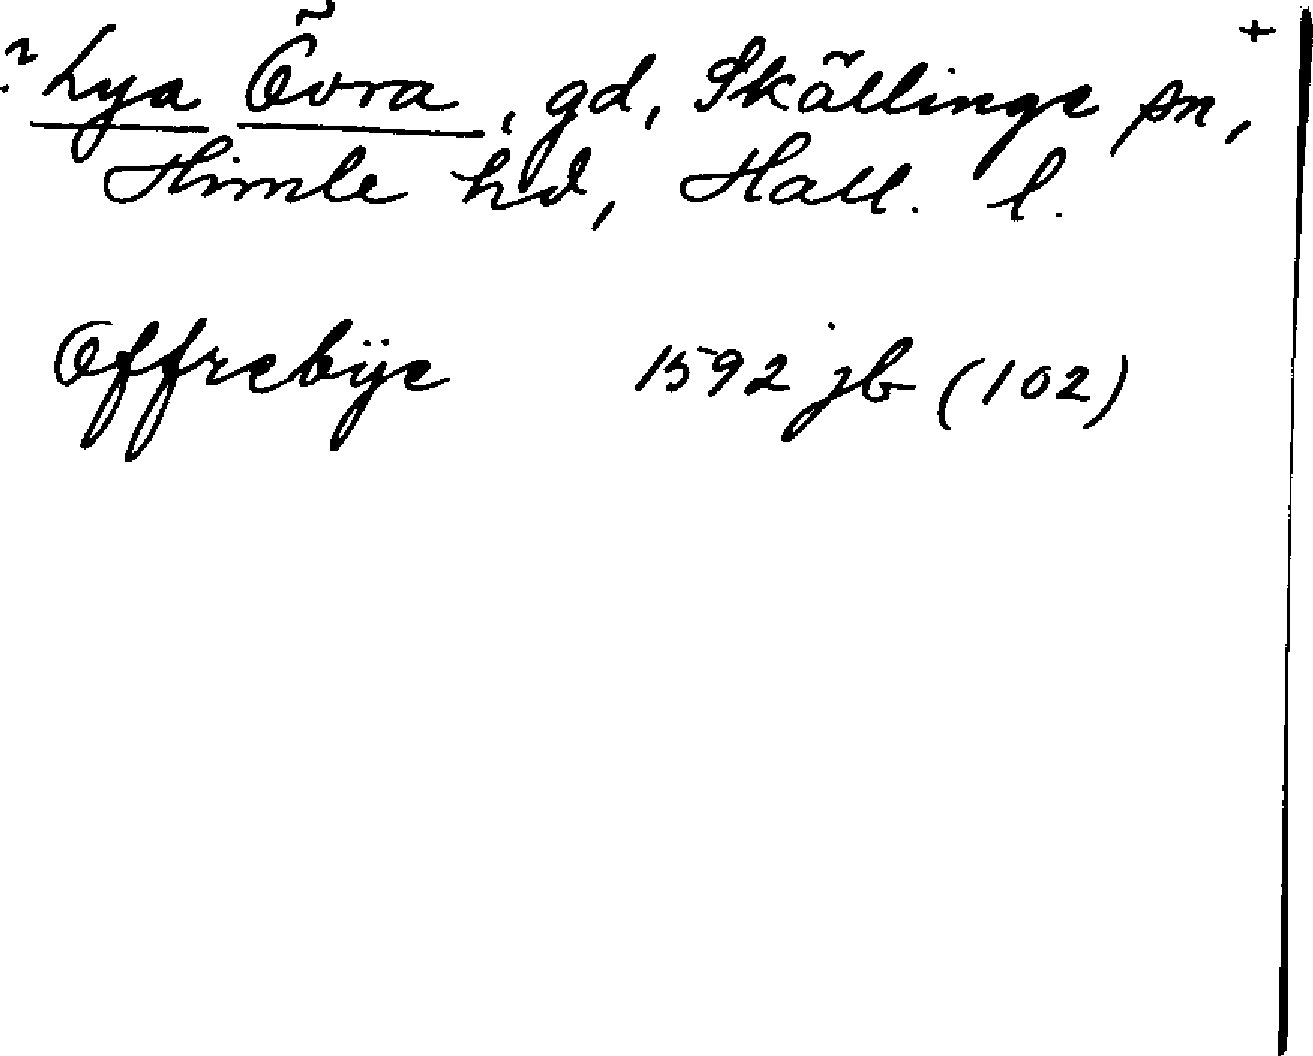 ? Lya Övra, gd, Skällinge sn, +
Himle hd, Hall. l.
Offrebÿe 1592 jb (102)